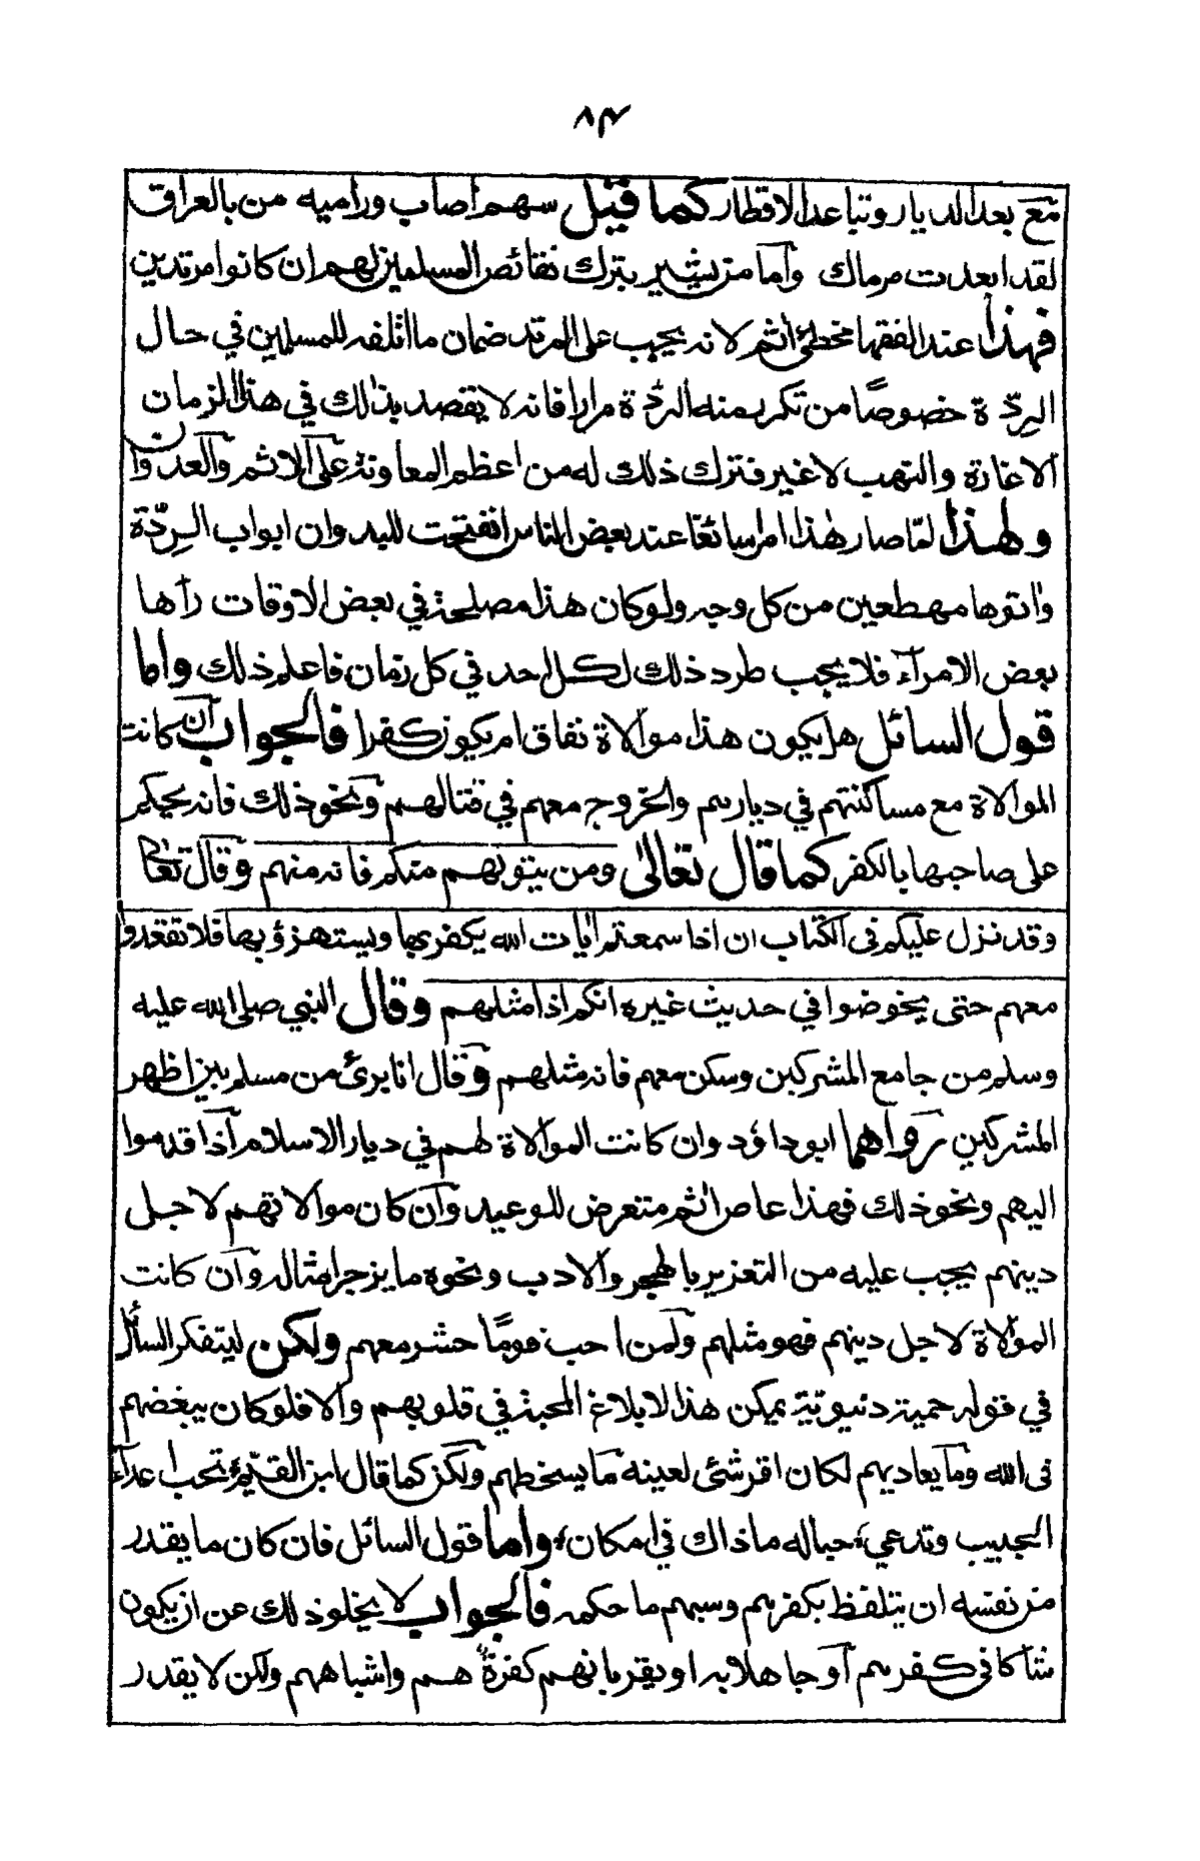 ٨٤
مع بعد الديار وتباعد الاقطار كما قيل سهم أصاب وراميه من بالعراق
لقد ابعدت مرماك وأما من يشير بترك نقائص المسلمين لهم ان كانوا مرتدين
فهذا عند الفقها مخطئ أثم لانه يجب على المرتد ضمان ما اتلفه للمسلمين في حال
الردّة خصوصًا من تكرر منه الردّة مرارا فانه لا يقصد بذلك في هذا الزمان
الا غارة والنهب لا غير فترك ذلك له من اعظم المعاونة على الاثم والعدوان
ولهذا لمّا صار هٰذا امرا سائغا عند بعض الناس انفتحت للبدوان ابواب الردّة
واتوها مهطعين من كل وجه ولو كان هذا مصلحة في بعض الاوقات رآها
بعض الامرآء فلا يجب طرد ذلك لكل احد في كل زمان فاعلم ذلك واما
قول السائل هل يكون هذا موالاة نفاق ام يكون كفرا فالجواب ان كانت
الموالاة مع مساكنتهم في ديارهم والخروج معهم في قتالهم ونحو ذلك فانه يحكم
على صاحبها بالكفر كما قال تعالىٰ ومن يتولهم منكم فانه منهم وقال تعالى
وقد نزل عليكم في الكتاب ان اذا سمعتم اٰيات الله يكفر بها ويستهزؤ بها فلا تقعدوا
معهم حتى يخوضوا في حديث غيره انكم اذا مثلهم وقال النبي صلى الله عليه
وسلم من جامع المشركين وسكن معهم فانه مثلهم وقال انا برئ من مسلم بين اظهر
المشركين رواهما ابو داؤد وان كانت الموالاة لهم في ديار الاسلام اذا قدموا
اليهم ونحو ذلك فهذا عاص اٰثم متعرض للوعيد وان كان موالاتهم لاجل
دينهم يجب عليه من التعزير بالهجر والادب ونحوه ما يزجر امثاله وان كانت
الموالاة لاجل دينهم فهو مثلهم ومن احب قومًا حشر معهم ولكن ليتفكر السائل
في قوله حمية دنيويّة يمكن هذا الا بلاغ المحبة في قلوبهم والا فلو كان يبغضهم
في الله وما يعاديهم لكان اقر شئ لعينه ما يسخطهم ولكن كما قال ابن القيّم تحب اعدآء
الحبيب وتدعي، حبا له ما ذاك في امكان، واما قول السائل فان كان ما يقدر
من نفسه ان يتلفظ بكفرهم وسبهم ما حكمه فالجواب لا يخلو ذلك عن ان يكون
شاكا في كفرهم او جاهلا به او يقر بانهم كفرة هم واشباههم ولكن لا يقدر